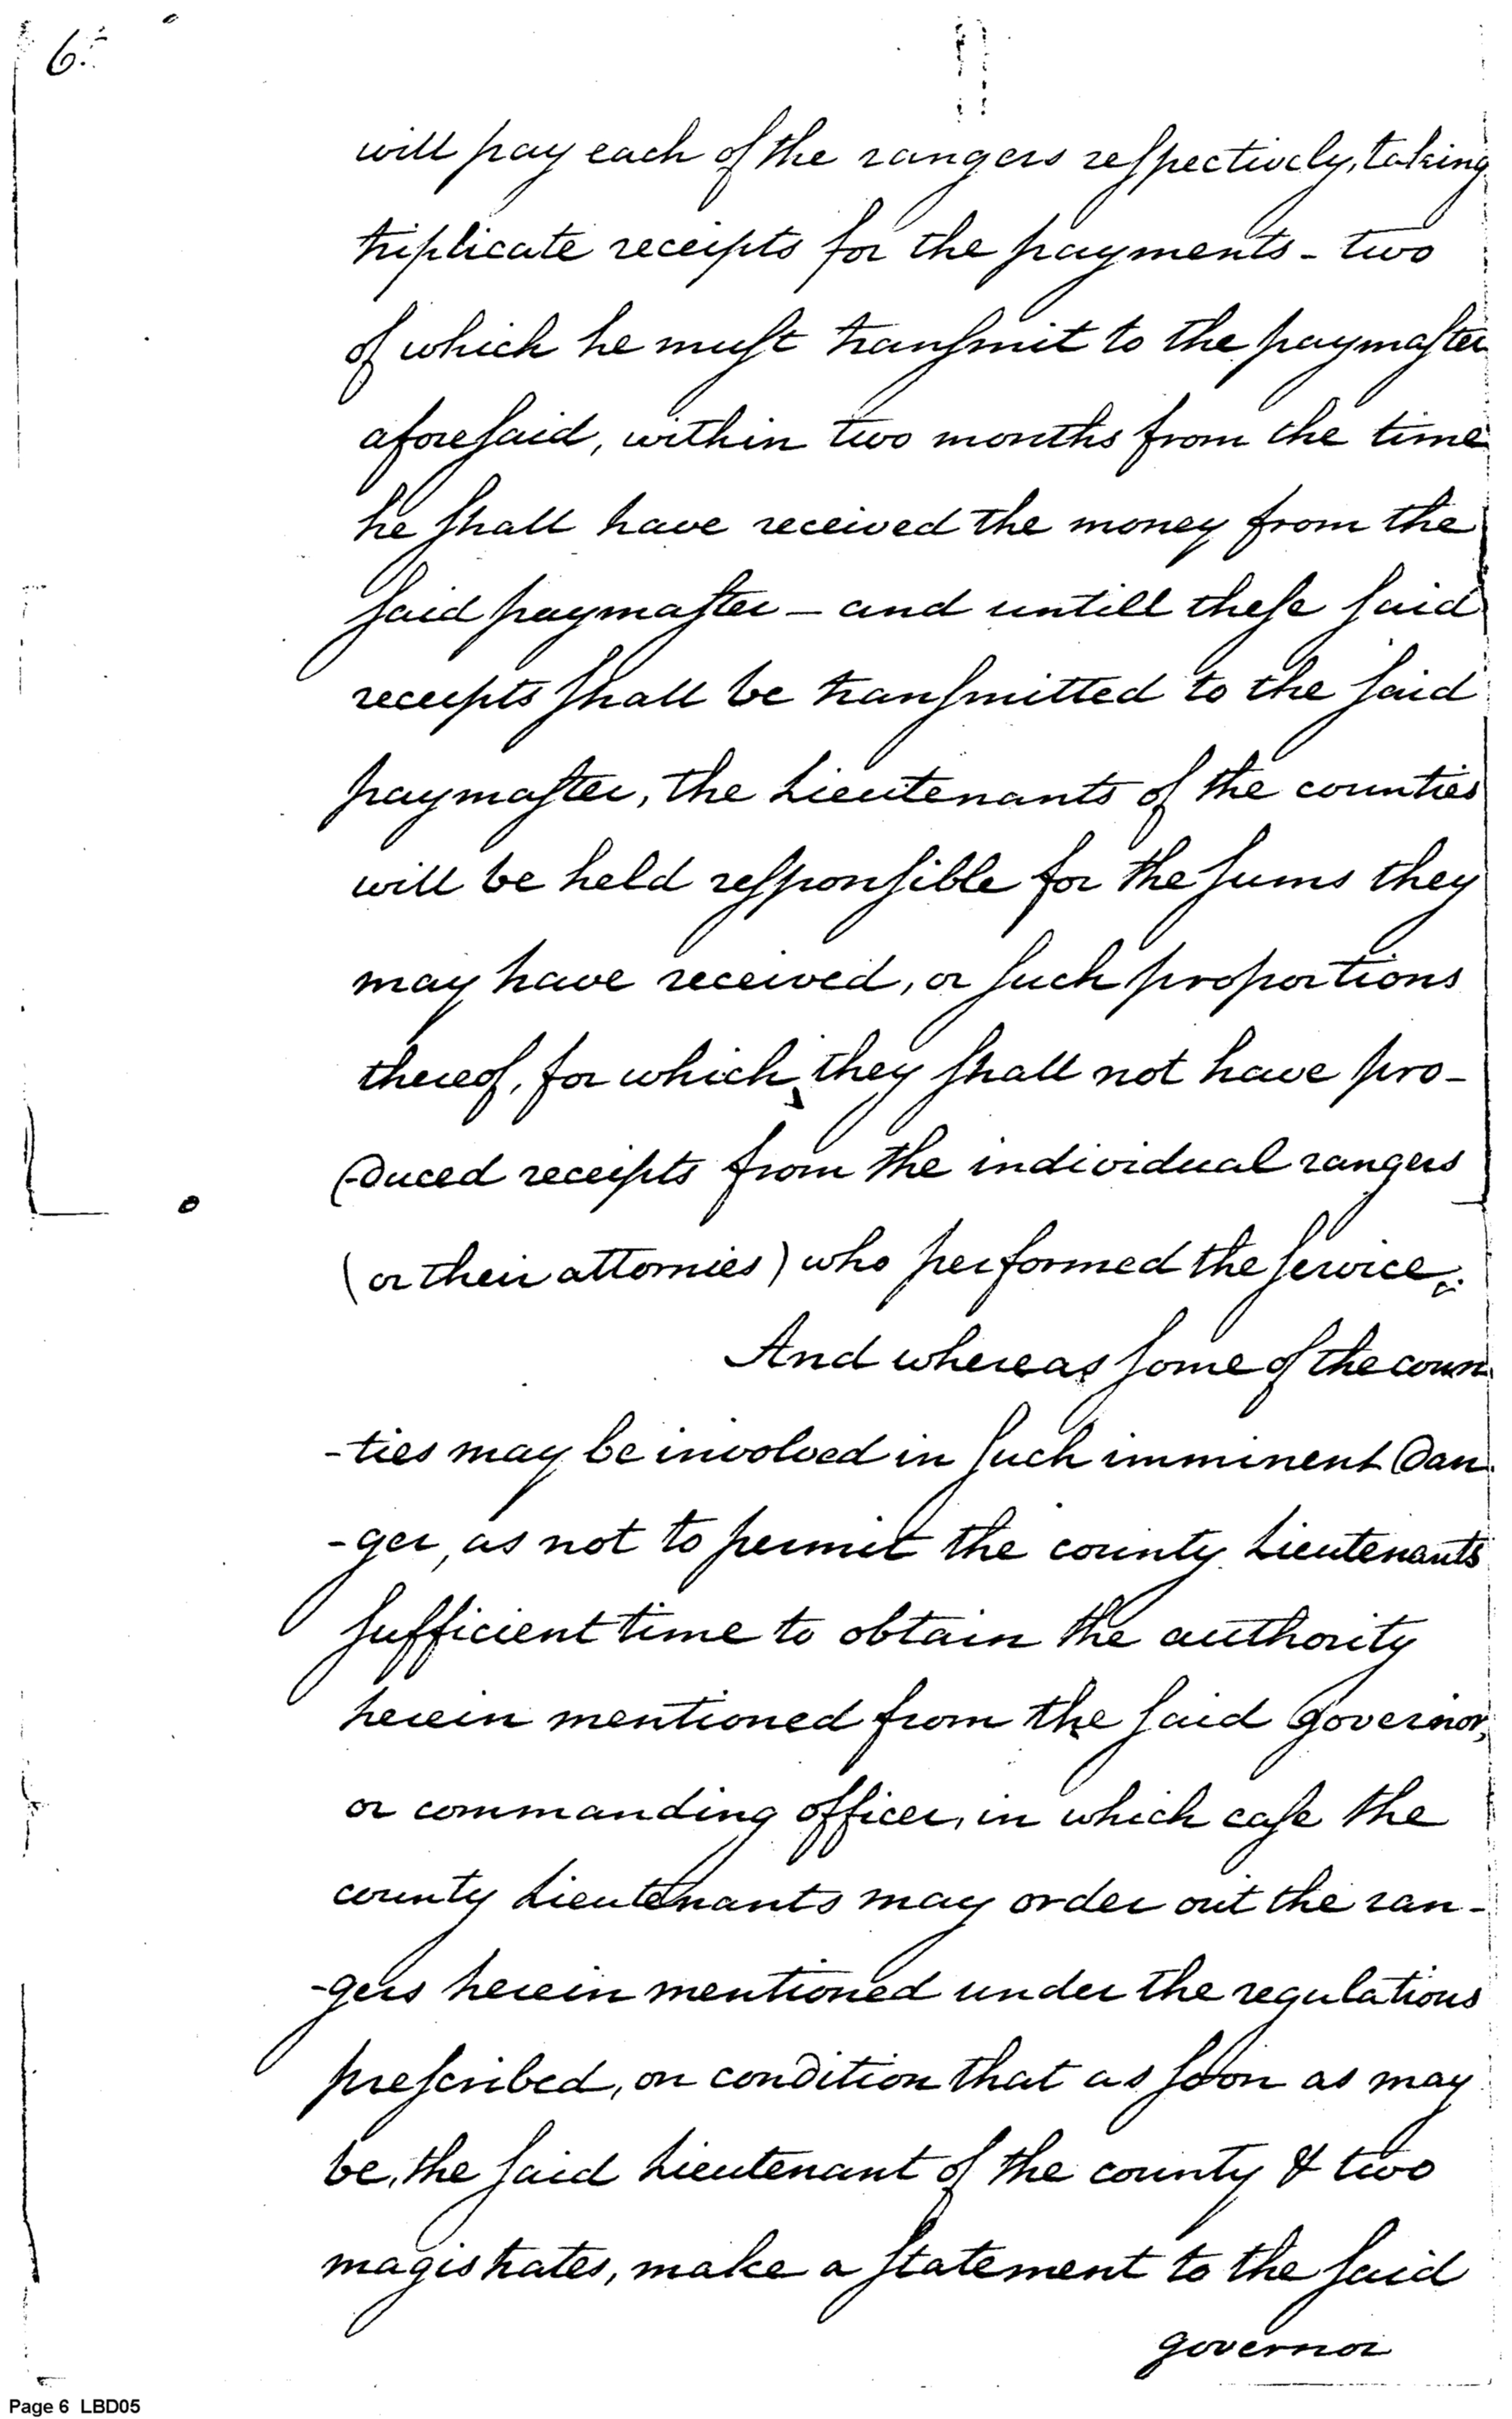 6.
will pay each of the rangers respectively, taking
triplicate receipts for the payments - two
of which he must transmit to the paymaster
aforesaid, within two months from the time
he shall have received the money from the
said paymaster — and untill these said
receipts shall be transmitted to the said
paymaster, the Lieutenants of the counties
will be held responsible for the sums they
may have received, or such proportions
thereof, for which, they shall not have pro-
-duced receipts from the individual rangers
(or their attornies) who performed the service.
And whereas some of the coun
-ties may be involved in such imminent Dan.
-ger, as not to permit the county Lieutenants
sufficient time to obtain the authority
herein mentioned from the said Governor,
or commanding officer, in which case the
county Lieutenants may order out the ran-
-gers herein mentioned under the regulations
prescribed, on condition that as soon as may
be, the said Lieutenant of the county & two
magistrates, make a statement to the said
governor
Page 6 LBD05